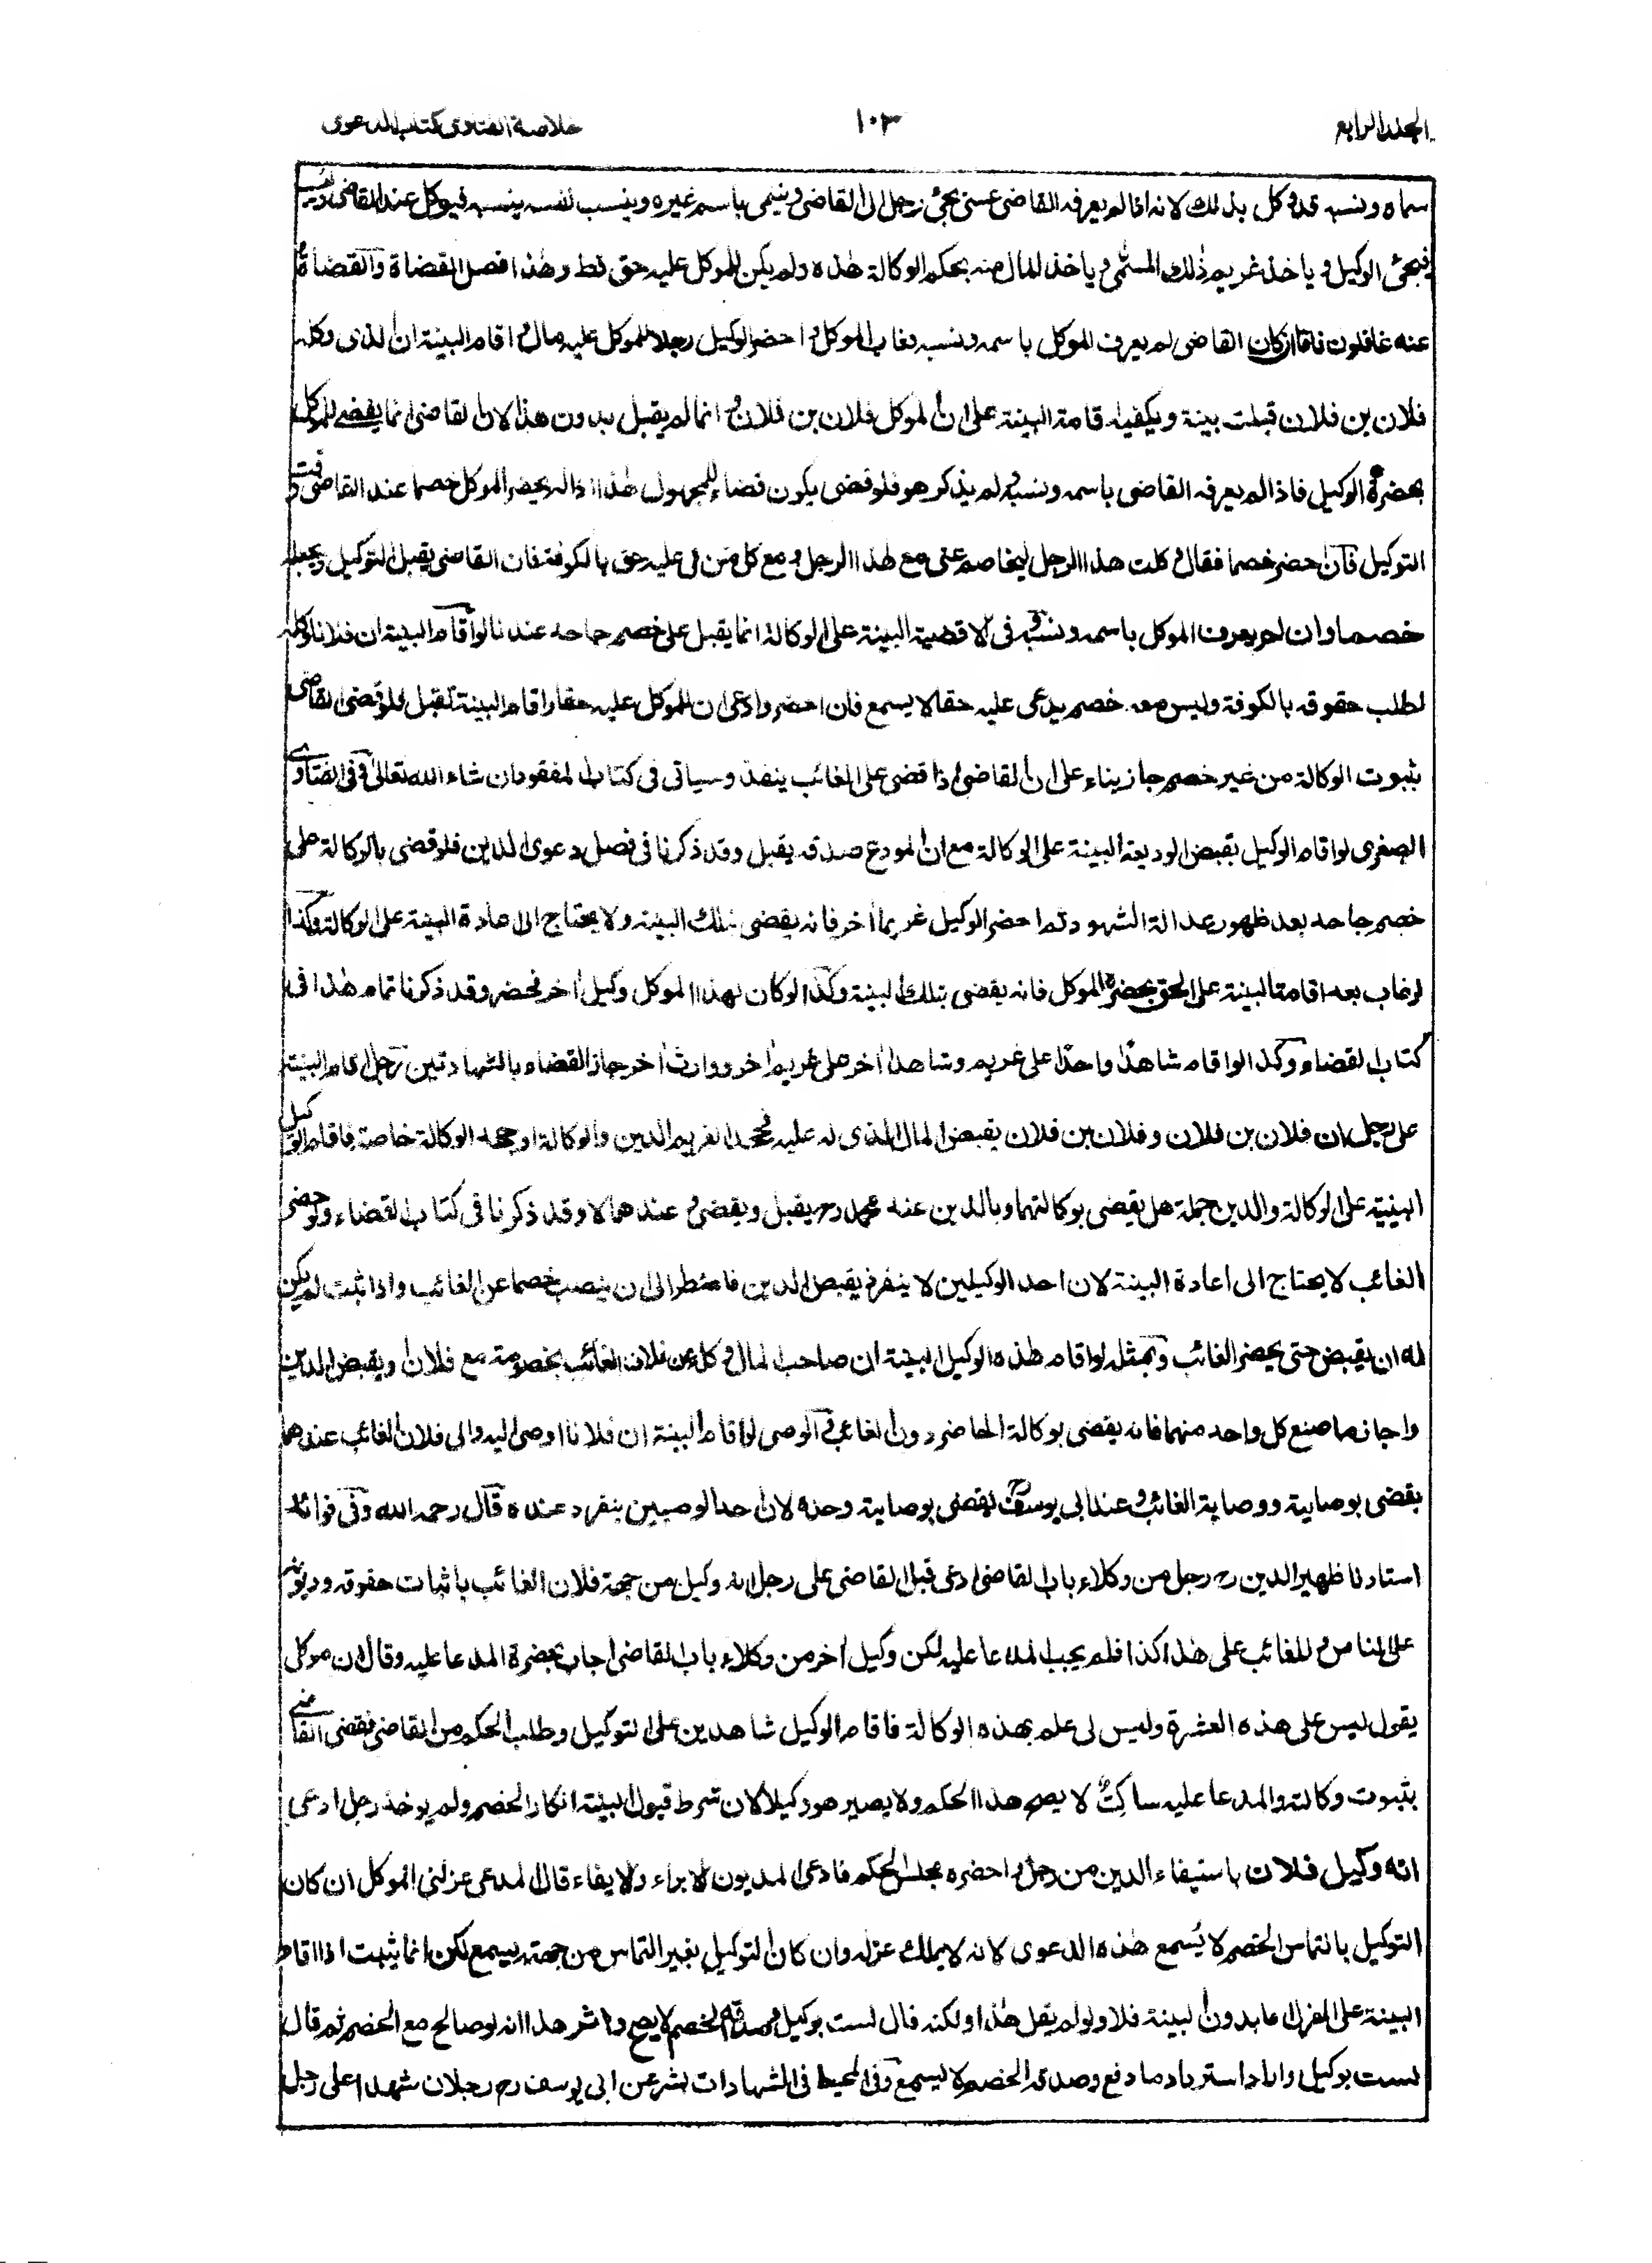 المجلد الرابع
١٠٣
خلاصة الفتاوى كتاب الدعوى
سماه ونسبه قد وكل بذلك لانه اذا لم يعرفه القاضى عسى يجئ رجل الى القاضى ويتسمى باسم غيره وينسب لنفسه ينسبه فيوكل عند القاضى
فيجئ الوكيل وياخذ غريم ذلك المسمى وياخذ المال منه بحكم الوكالة هذه ولم يكن للموكل عليه حق قط وهذا افصل القضاة والقضاة
عنه غافلون فاما ان كان القاضى لم يعرف الموكل باسمه ونسبه وغاب الموكل واحضر الوكيل رجلا للموكل عليه مال واقام البينة ان الذى وكله
فلان بن فلان قبلت بينة ويكفيه اقامة البينة على ان الموكل فلان بن فلان وانما لم يقبل بدون هذا لان القاضى انما يقضى للموكل
بحضرة الوكيل فاذا لم يعرفه القاضى باسمه ونسبه ولم يذكر هو فلو قضى يكون قضاء للمجهول هذا اذا لم يحضر الموكل خصما عند القاضى وقت
التوكيل فان احضر خصما فقال وكلت هذا الرجل ليخاصم عنى مع هذا الرجل ومع كل من لى عليه حق بالكوفة فان القاضى يقبل التوكيل ويجعله
خصما وان لم يعرف الموكل باسمه ونسبه وفى الاقضية البينة على الوكالة انما يقبل على خصم جاحد عندنا لو اقام البينة ان فلانا وكله
لطلب حقوقه بالكوفة وليس معه خصم يدعى عليه حقا لا يسمع فان احضر وادعى ان للموكل عليه حقا واقام البينة تقبل فلو قضى القاضى
بثبوت الوكالة من غير خصم جاز بناء على ان القاضى اذا قضى على الغائب ينفذ وسياتى فى كتاب المفقود ان شاء الله تعالى وفى الفتاوى
الصغرى لو اقام الوكيل بقبض الوديعة البينة على الوكالة مع ان المودع صدقه يقبل وقد ذكرنا فى فصل دعوى الدين فلو قضى بالوكالة على
خصم جاحد بعد ظهور عدالة الشهود ثم احضر الوكيل غريما اخر فانه يقضى بتلك البينة ولا يحتاج الى اعادة البينة على الوكالة وكذا
لو غاب بعد اقامة البينة على الحق بحضرة الموكل فانه يقضى بتلك البينة وكذا لو كان لهذا الموكل وكيل اخر فحضر وقد ذكرنا تمام هذا فى
كتاب القضاء وكذا لو اقام شاهدا واحدا على غريم وشاهدا اخر على غريم اخر ووارث اخر جاز القضاء بالشهادتين رجل اقام البينة
على رجل ان فلان بن فلان وفلان بن فلان بقبض المال الذى له عليه فجحد الغريم الدين والوكالة او جحد الوكالة خاصة فاقام الوكيل
البينة على الوكالة والدين جملة هل يقضى بوكالتهما وبالدين عند محمد رح يقبل ويقضى و عندهما لا وقد ذكرنا فى كتاب القضاء ولو حضر
الغائب لا يحتاج الى اعادة البينة لان احد الوكيلين لا ينفرد بقبض الدين فاضطر الى ان ينصب خصما عن الغائب واذا ثبت لم يكن
له ان يقبض حتى يحضر الغائب وبمثله لو اقام هذه الوكيل البينة ان صاحب المال وكله عن فلان الغائب بخصومته مع فلان ويقبض الدين
واجاز ما صنع كل واحد منهما فانه يقضى بوكالة الحاضر دون الغائب وفى الوصى لو اقام البينة ان فلانا اوصى اليه والى فلان الغائب عندهما
يقضى بوصاية ووصاية الغائب وعند ابى يوسف يقضى بوصاية وحده لان احد الوصيين ينفرد عنده قال رحمه الله وفى فوائد
استادنا ظهير الدين رح رجل من وكلاء باب القاضى ادعى قبل القاضى على رجل انه وكيل من جهة فلان الغائب باثبات حقوقه وديونه
على الناس و للغائب على هذا كذا فلم يجب المدعا عليه لكن وكيل اخر من وكلاء باب القاضى اجاب بحضرة المدعا عليه وقال ان موكلى
يقول ليس على هذه العشرة وليس لى علم بهذه الوكالة فاقام الوكيل شاهدين على التوكيل وطلب الحكم من القاضى فقضى القاضى
بثبوت وكالته والمدعا عليه ساكت لا يصح هذا الحكم ولا يصير هو وكيلا لان شرط قبول البينة انكار الخصم ولم يوخذ رجل ادعى
انه وكيل فلان باستيفاء الدين من رجل واحضره مجلس الحكم فادعى المديون الابراء والايفاء قال المدعى عزلنى الموكل ان كان
التوكيل بالتماس الخصم لا يسمع هذه الدعوى لانه لا يملك عزله وان كان التوكيل بغير التماس من جهته يسمع لكن انما يثبت اذا اقام
البينة على العزل اما بدون البينة فلا ولو لم يقل هذا ولكنه قال لست بوكيل وصدقه الخصم لا يصح واثر هذا انه لو صالح مع الخصم ثم قال
لست بوكيل واراد استرداد ما دفع وصدقه الخصم لا يسمع وفى المحيط فى الشهادات بشر عن ابى يوسف رح رجلان شهدا على رجل